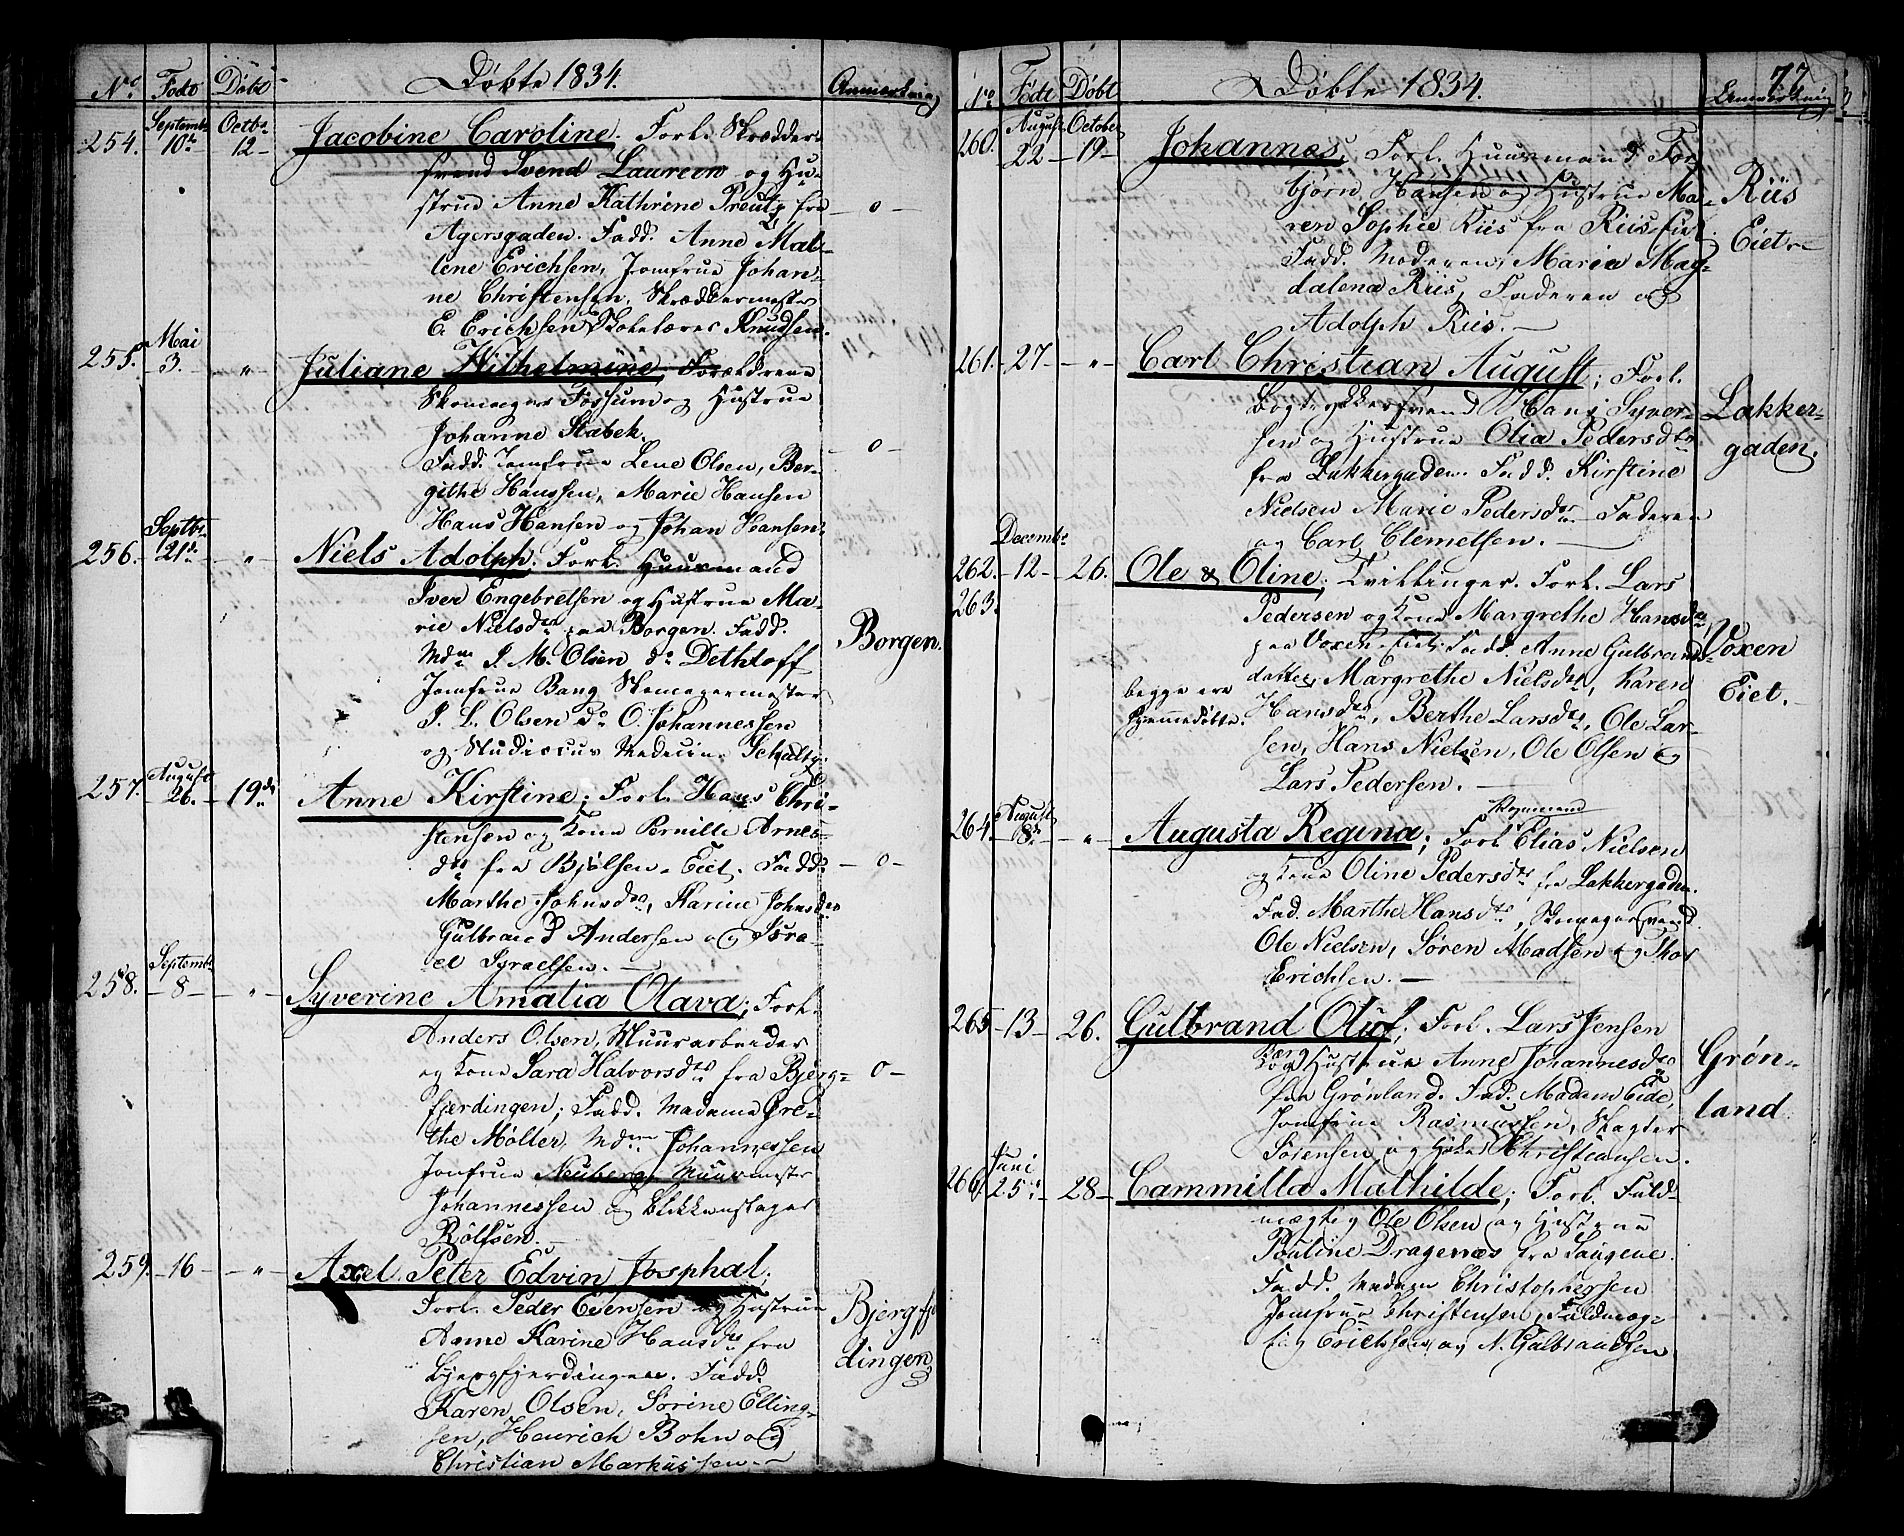 No. Fødte Døbt Døbte 1834. Anmærkning
254. Septembr 10de Octbr 12 Jacobine Caroline. Forl. Skrædder-
svend Svend Laurson og Hu-
strue Anne Kathrine Preutz fra - o -
Agersgaden. Fadd. Anne Mal-
lene Erichsen, Jomfrue Johan-
ne Christensen, Skræddermester
E. Erichsen Skolelærer Knudsen.
255. Mai 3. " Juliane Wilhelmine, Forældrene
Skomager Fossum og Hustrue
Johanne Stabek.
Fadd. Jomfrue Lene Olsen, Ber- - o -
githe Hanssen, Marie Hansen
Hans Hansen og Johan Hansen.
256. Septbr 21de " Niels Adolph. Forl. Huusmand
Iver Engebretsen og Hustrue Ma-
rie Nielsdtr paa Borgen. Fadd. Borgen.
Mdm J. M. Olsen do Dethloff
Jomfrue Bang Skomagermester
J. L. Olsen do O. Johannessen
og Studiosus Medicin.
257. August 26. 19de Anne Kirstine; Forl. Hans Chri-
stensen og Kone Pernille Arnes-
dtr fra Bjølsen-Eiet. Fadd. - o -
Marthe Johnsdtr, Karine Johnsdtr
Gulbrand Andersen og Isra-
el Israelsen.
258. Septembr 8 " Syverine Amalia Olava; Forl.
Anders Olsen, Muurarbeider
og Kone Sara Halvorsdtr fra Bjerg- - o -
fjerdingen; Fadd. Madame Gre-
the Møller, Mdm Johannessen
Jomfrue Neuberg, Muurmester
Johannessen og Blikkenslager
Rolfsen.
259. 16 " Axel Peter Edvin Josphat.
Forl. Peder Evensen og Hustrue Bjergfjer
Anne Karine Hansdtr fra
Bjergfjerdingen. Fadd. dingen
Karen Olsen, Sørine Elling-
sen, Henrich Bohn og
Christian Markussen.
77
No. Fødte Døbt Døbte 1834. Anmærkning
260. August 22 October 19 Johannes, Forl. Huusmand Tor-
bjørn Hansen og Hustrue Ma- Riis
ren Sophie Riis fra Riis Eiet. Eiet
Fadd. Moderen, Maria Mag-
dalena Riis, Faderen og
Adolph Riis.
261. 27 " Carl Christian August; Forl.
Bogtrykkersvend Hans Syver- Lakker-
sen og Hustrue Olia Pedersdtr gaden.
fra Lakkergaden. Fadd. Kirstine
Nielsen Marie Pedersdtr Faderen
og Carl Clemetsen.
262. Decembr 12 26. Ole & Oline; Tvillinger. Forl. Lars
263. Pedersen og Kone Margrethe Hansdtr
paa Voxen-Eiet. Fadd. Anne Gulbrands- Voxen
begge ere datter, Margrethe Nielsdtr, Karen Eiet.
hjemmedøbte. Hansdtr, Berthe Larsdtr, Ole Lar-
sen, Hans Nielsen, Ole Olsen &
Lars Pedersen.
264. August 8de " Augusta Regina; Forl Elias Nielsen
og Kone Oline Pedersdtr fra Lakkergaden.
Fad. Marthe Hansdtr, Skomagersvend
Ole Nielsen, Søren Madsen og Thor
Erichsen.
265 13 26. Gulbrand Oluf; Forl. Lars Jensen
Berg
og Hustrue Anne Johannesdtr Grøn-
fra Grønland. Fad. Madam Eide, land
Jomfrue Rasmussen, Slagter
Sørensen og Christiansen.
266. Juni 25de 28 Cammilla Mathilde; Forl. Fuld-
mægtig Ole Olsen og Hustrue
Pauline Dragenæs fra Taugene.
Fadd. Madam Christophersen
Jomfrue Christensen, Fuldmæg-
tig Erichsen og N. Gulbrandsen